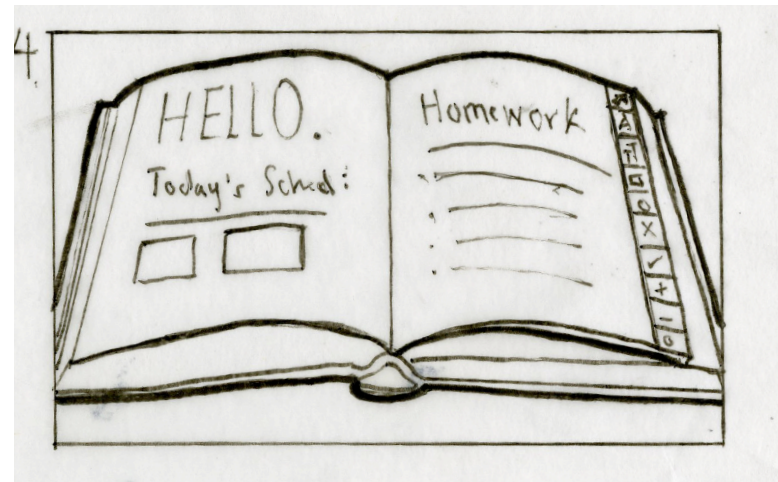 4.
HELLO.
Today's Sched:
Homework